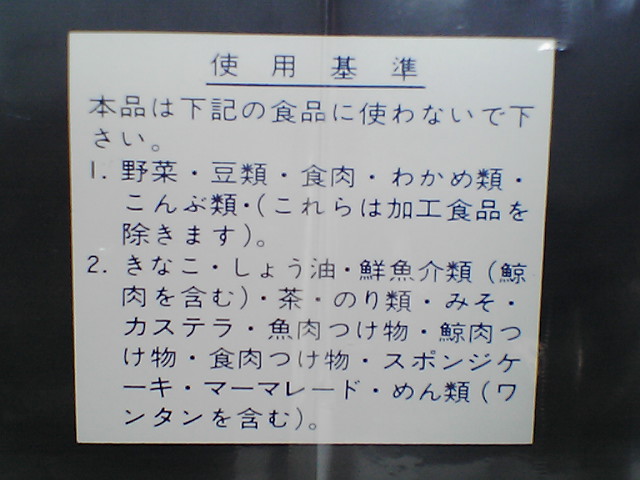 使用基準
本品は下記の食品に使わないで下
さい。
1. 野菜・豆類・食肉・わかめ類・
こんぶ類・(これらは加工食品を
除きます)。
2. きなこ・しょう油・鮮魚介類(鯨
肉を含む)・茶・のり類・みそ・
カステラ・魚肉つけ物・鯨肉つ
け物・食肉つけ物・スポンジケ
ーキ・マーマレード・めん類(ワ
ンタンを含む)。